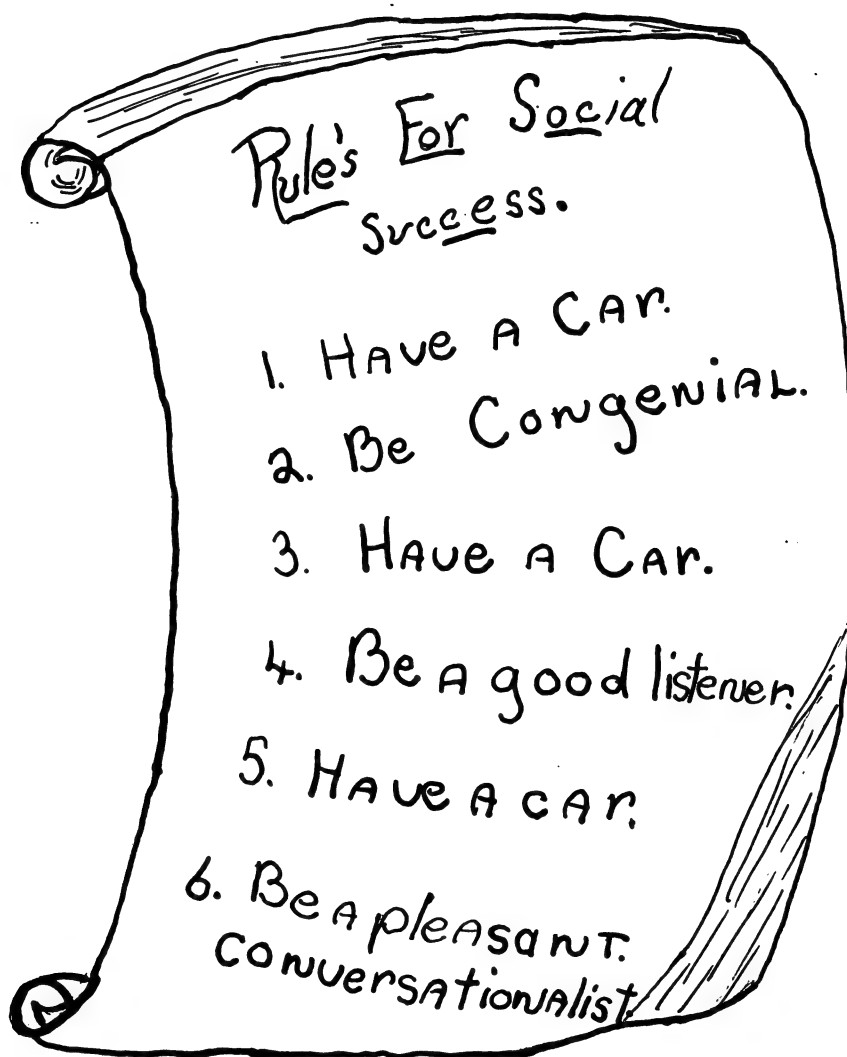 Rule's For Social
success.
1. Have a Car.
2. Be Congenial.
3. Have a Car.
4. Be a good listener.
5. Have a car.
6. Be a pleasant.
conversationalist.